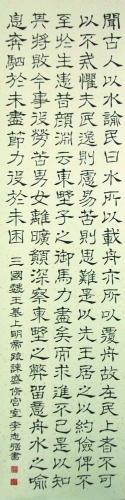 聞古人以水諭民曰水所以載舟亦所以覆舟故在民上者不可
以不戒懼夫民逸則慮易苦則思難是以先王居之以約儉俾不
至於生患昔顏淵云東野子之御馬力盡矣而求進不已是以知
其將敗今事役勞苦男女離曠願深察東野之弊留意舟水之喻
息奔駟於未盡節力役於未困 三國魏王基上明帝疏諫盛脩宮室 李志强書